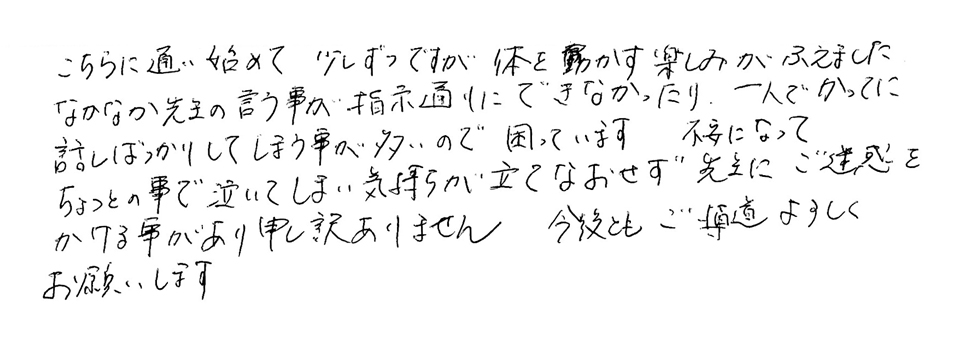 こちらに通い始めて 少しずつですが 体を動かす楽しみがふえました
なかなか先生の言う事が指示通りにできなかったり、一人でかってに
話しばっかりしてしまう事が多いので 困っています 不安になって
ちょっとの事で泣いてしまい気持ちが立てなおせず 先生にご迷惑を
かける事があり申し訳ありません 今後ともご指導よろしく
お願いします